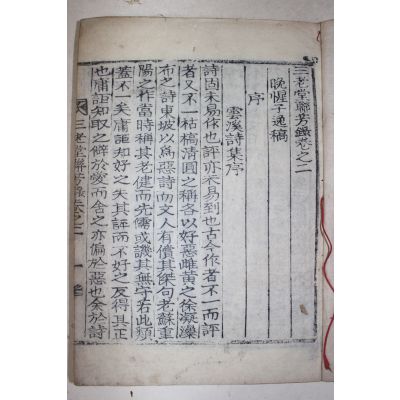 三老堂聯芳錄卷之二
晩惺子逸稿
序
雲溪詩集序
詩固未易作也評亦不易到也古今作者不一而評
者又不一枯槁淸圓之稱各以好惡雌黃之徐凝瀑
布之詩東坡以爲惡詩而文人有償其傑句老蘇重
陽之作當時稱其老健而先儒或譏其無若此類
蓋不一矣庸詎知好之失其評而不好之反得其正
也庸詎知取之僻於愛而舍之亦偏於惡也余於詩
三老堂聯芳錄卷之二 一